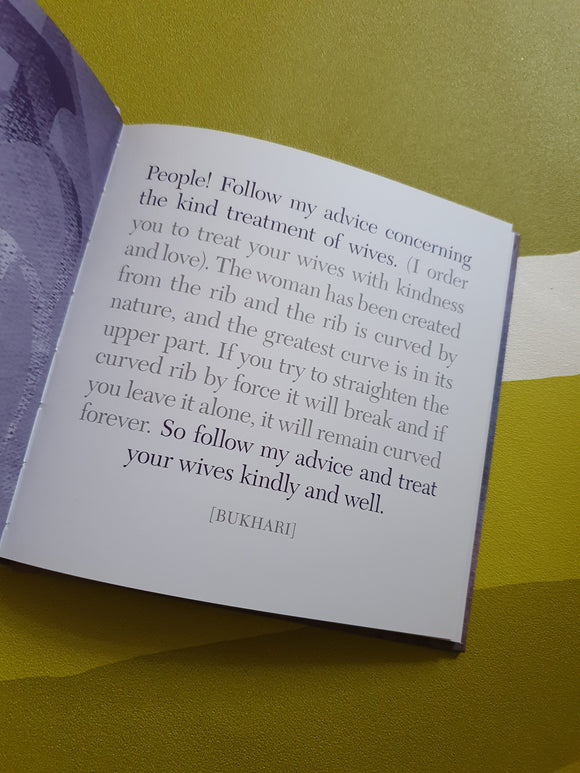 People! Follow my advice concerning
the kind treatment of wives. (I order
you to treat your wives with kindness
and love). The woman has been created
from the rib and the rib is curved by
nature, and the greatest curve is in its
upper part. If you try to straighten the
curved rib by force it will break and if
you leave it alone, it will remain curved
forever. So follow my advice and treat
your wives kindly and well.
[BUKHARI]